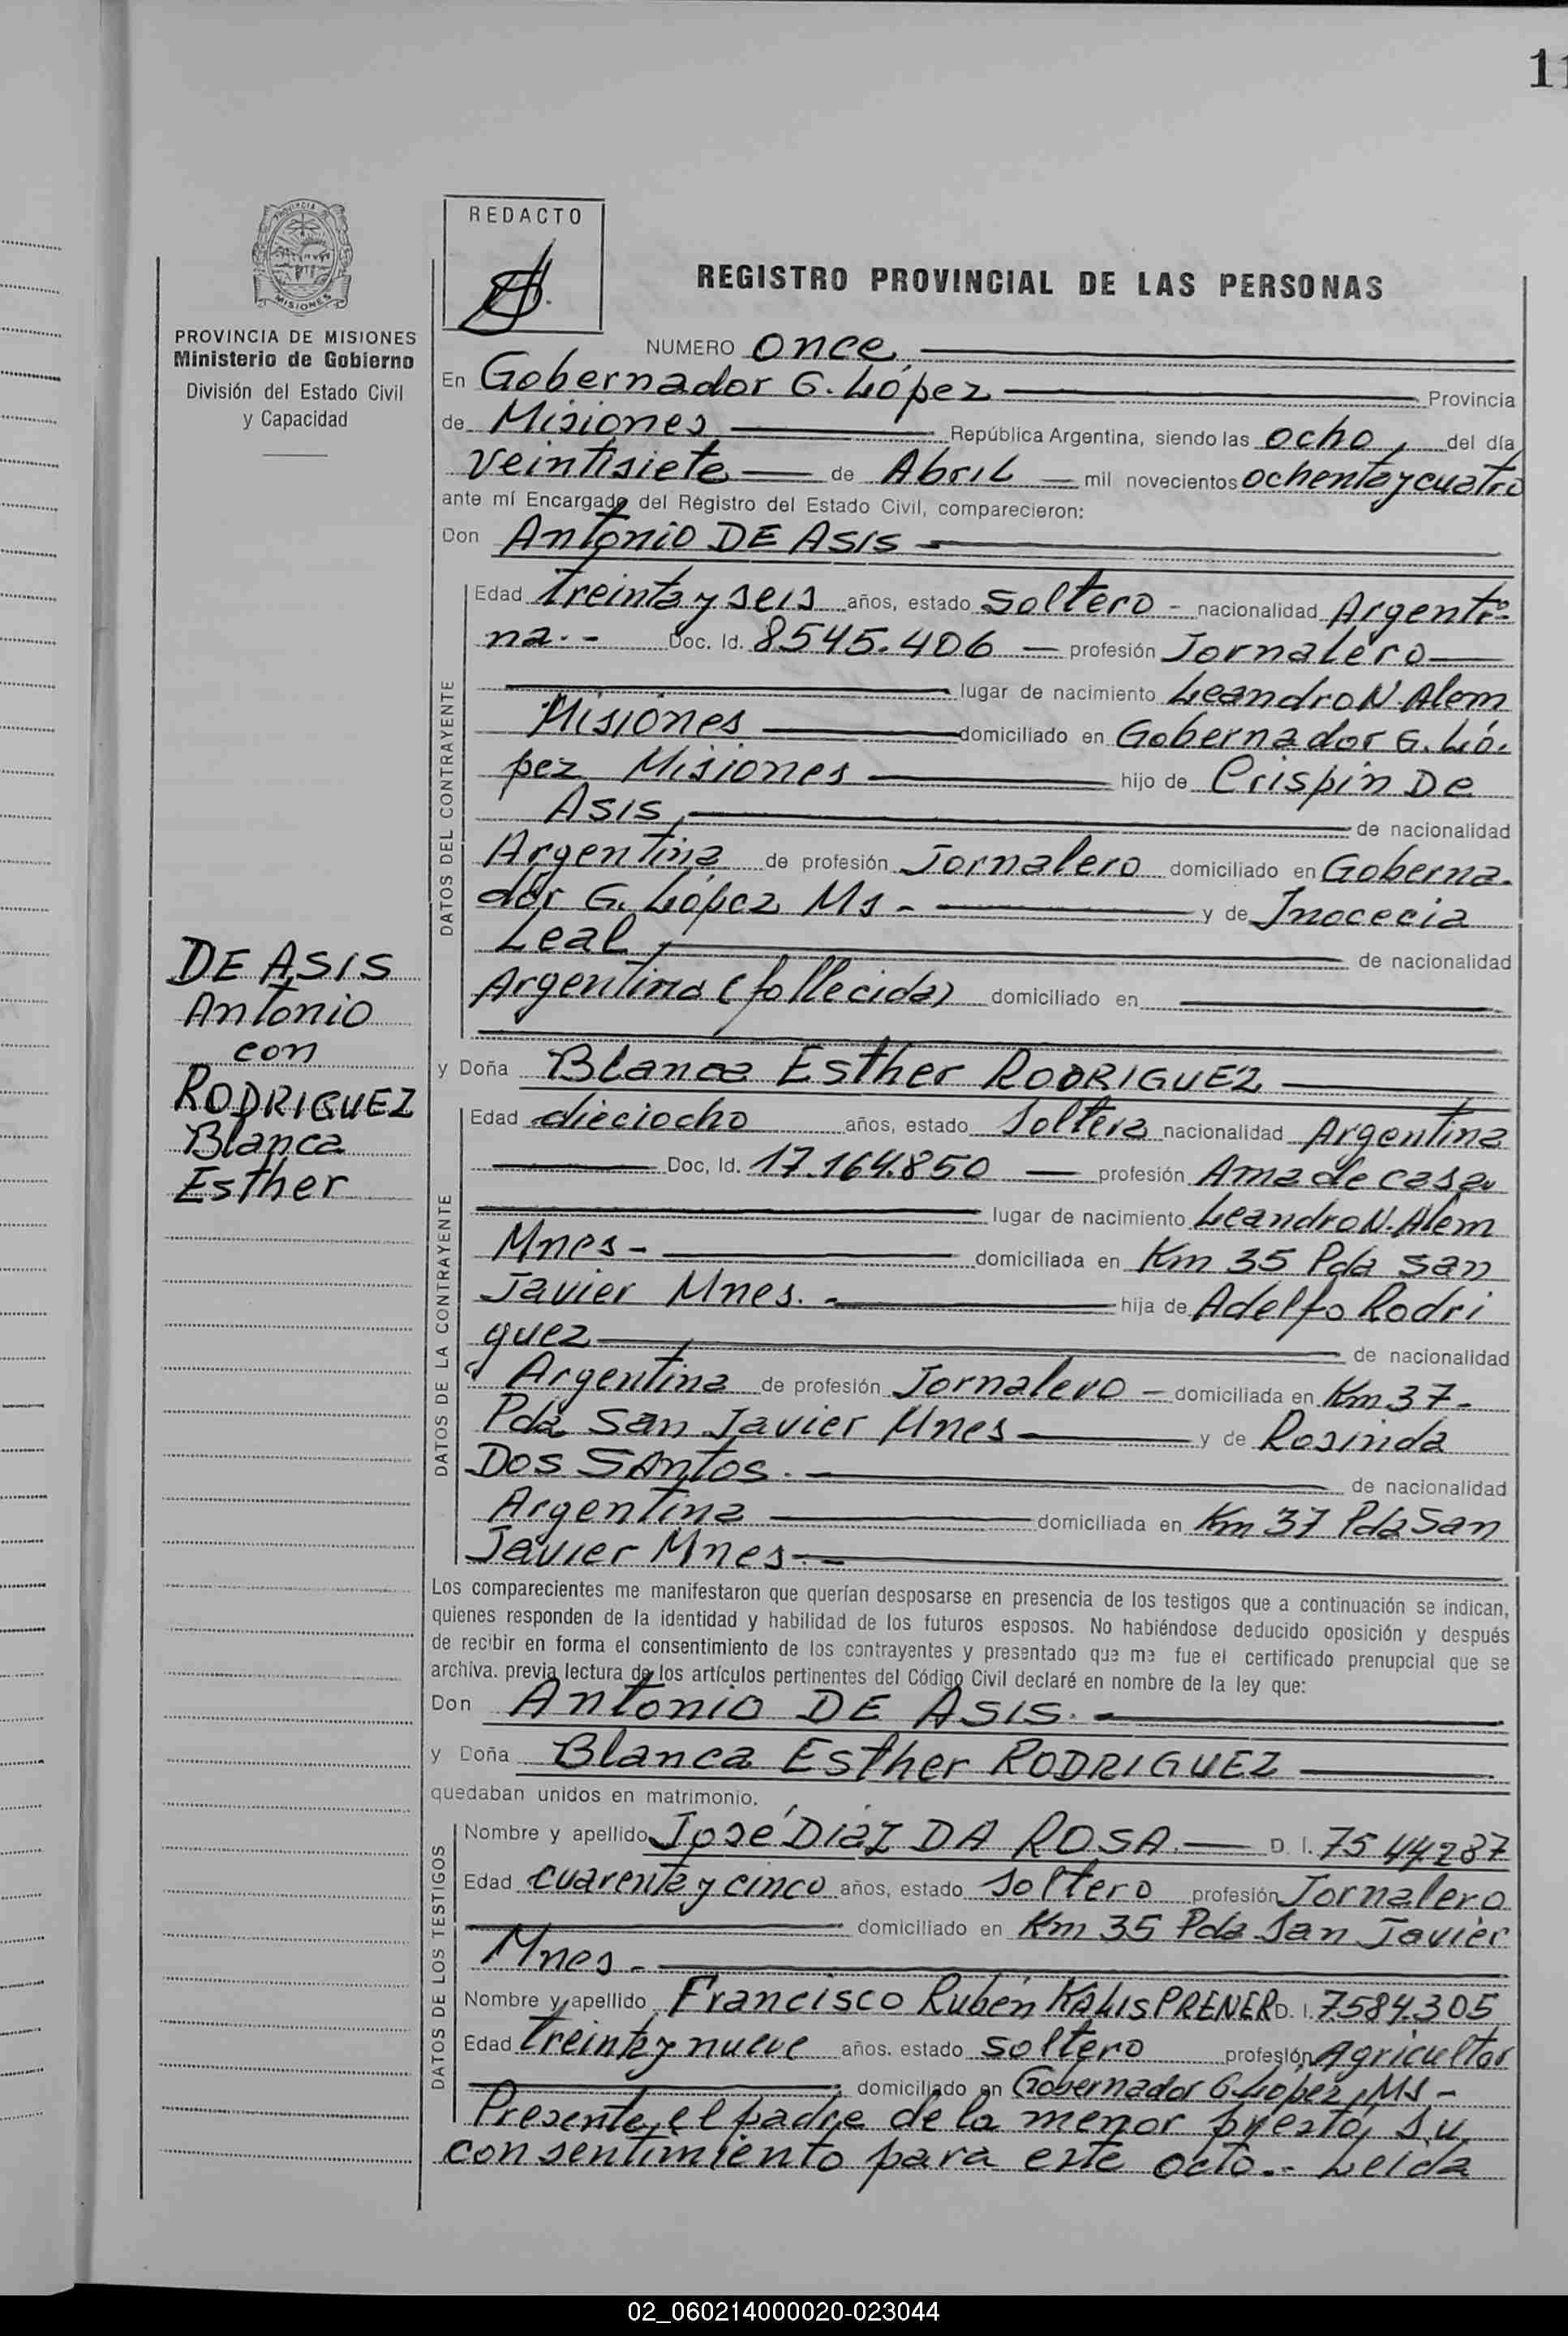 11
REDACTO
PROVINCIA DE
MISIONES
PROVINCIA DE MISIONES
Ministerio de Gobierno
División del Estado Civil
y Capacidad
REGISTRO PROVINCIAL DE LAS PERSONAS
NUMERO once
En Gobernador G. López Provincia
de Misiones República Argentina, siendo las ocho, del día
veintisiete — de Abril — mil novecientos ochenta y cuatro
ante mí Encargado del Registro del Estado Civil, comparecieron:
Don Antonio DE ASIS
DATOS DEL CONTRAYENTE
Edad treinta y seis años, estado soltero - nacionalidad Argenti-
na.- Doc. Id. 8545.406 — profesión Jornalero
lugar de nacimiento Leandro N. Alem
Misiones domiciliado en Gobernador G. Ló.
pez Misiones hijo de Crispín De
Asis, de nacionalidad
Argentina de profesión Jornalero domiciliado en Goberna.
dor G. López Ms - y de Inocecia
Leal, de nacionalidad
Argentina (fallecida) domiciliado en
y Doña Blanca Esther RODRIGUEZ
DATOS DE LA CONTRAYENTE
Edad dieciocho años, estado soltera nacionalidad Argentina
Doc, Id. 17.164.850 — profesión Ama de casa
lugar de nacimiento Leandro N. Alem
Mnes - domiciliada en Km 35 Pda San
Javier Mnes. - hija de Adelfo Rodri
guez de nacionalidad
Argentina de profesión Jornalero - domiciliada en Km 37 -
Pda San Javier Mnes y de Rosinda
DOS SANTOS. - de nacionalidad
Argentina domiciliada en Km 37 Pda San
Javier Mnes.-
DE ASIS
Antonio
con
RODRIGUEZ
Blanca
Esther
Los comparecientes me manifestaron que querían desposarse en presencia de los testigos que a continuación se indican,
quienes responden de la identidad y habilidad de los futuros esposos. No habiéndose deducido oposición y después
de recibir en forma el consentimiento de los contrayentes y presentado que me fue el certificado prenupcial que se
archiva. previa lectura de los artículos pertinentes del Código Civil declaré en nombre de la ley que:
Don Antonio DE ASIS. -
y Doña Blanca Esther RODRIGUEZ
quedaban unidos en matrimonio.
DATOS DE LOS TESTIGOS
Nombre y apellido José Díaz DA ROSA. — D. I. 75 44287
Edad cuarenta y cinco años, estado soltero profesión Jornalero
domiciliado en Km 35 Pda San Javier
Mnes -
Nombre y apellido Francisco Rubén KALISPRENER D. I. 7584.305
Edad treinta y nueve años. estado soltero profesión Agricultor
domiciliado en Gobernador G. López, Ms -
Presente el padre de la menor prestó su
consentimiento para este acto.- Leída
02_060214000020-023044